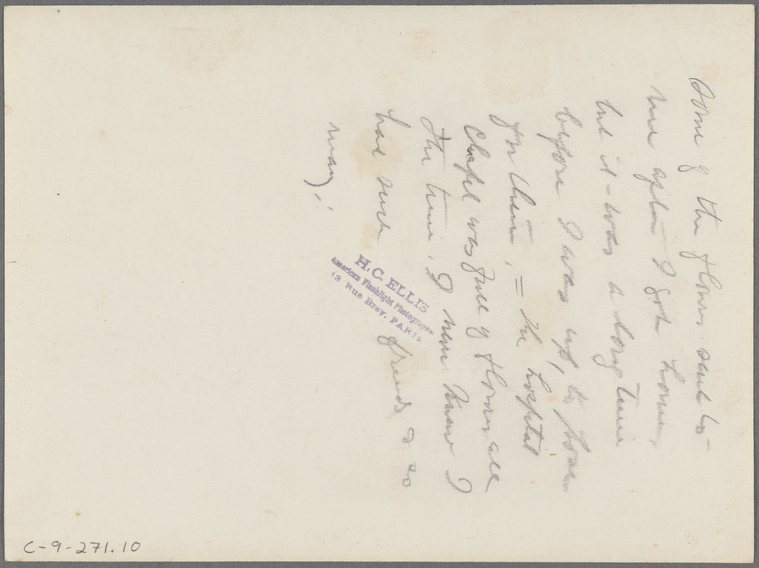 Some of the flowers sent to
me after I got home,
but it was a long time
before I was up, to pose
for them, = the hospital
Chapel was full of flowers all
the time, I never knew I
had such friends & so
many!
H.C. ELLIS
American Flashlight Photographer
13 Rue Brey, PARIS
C-9-271.10